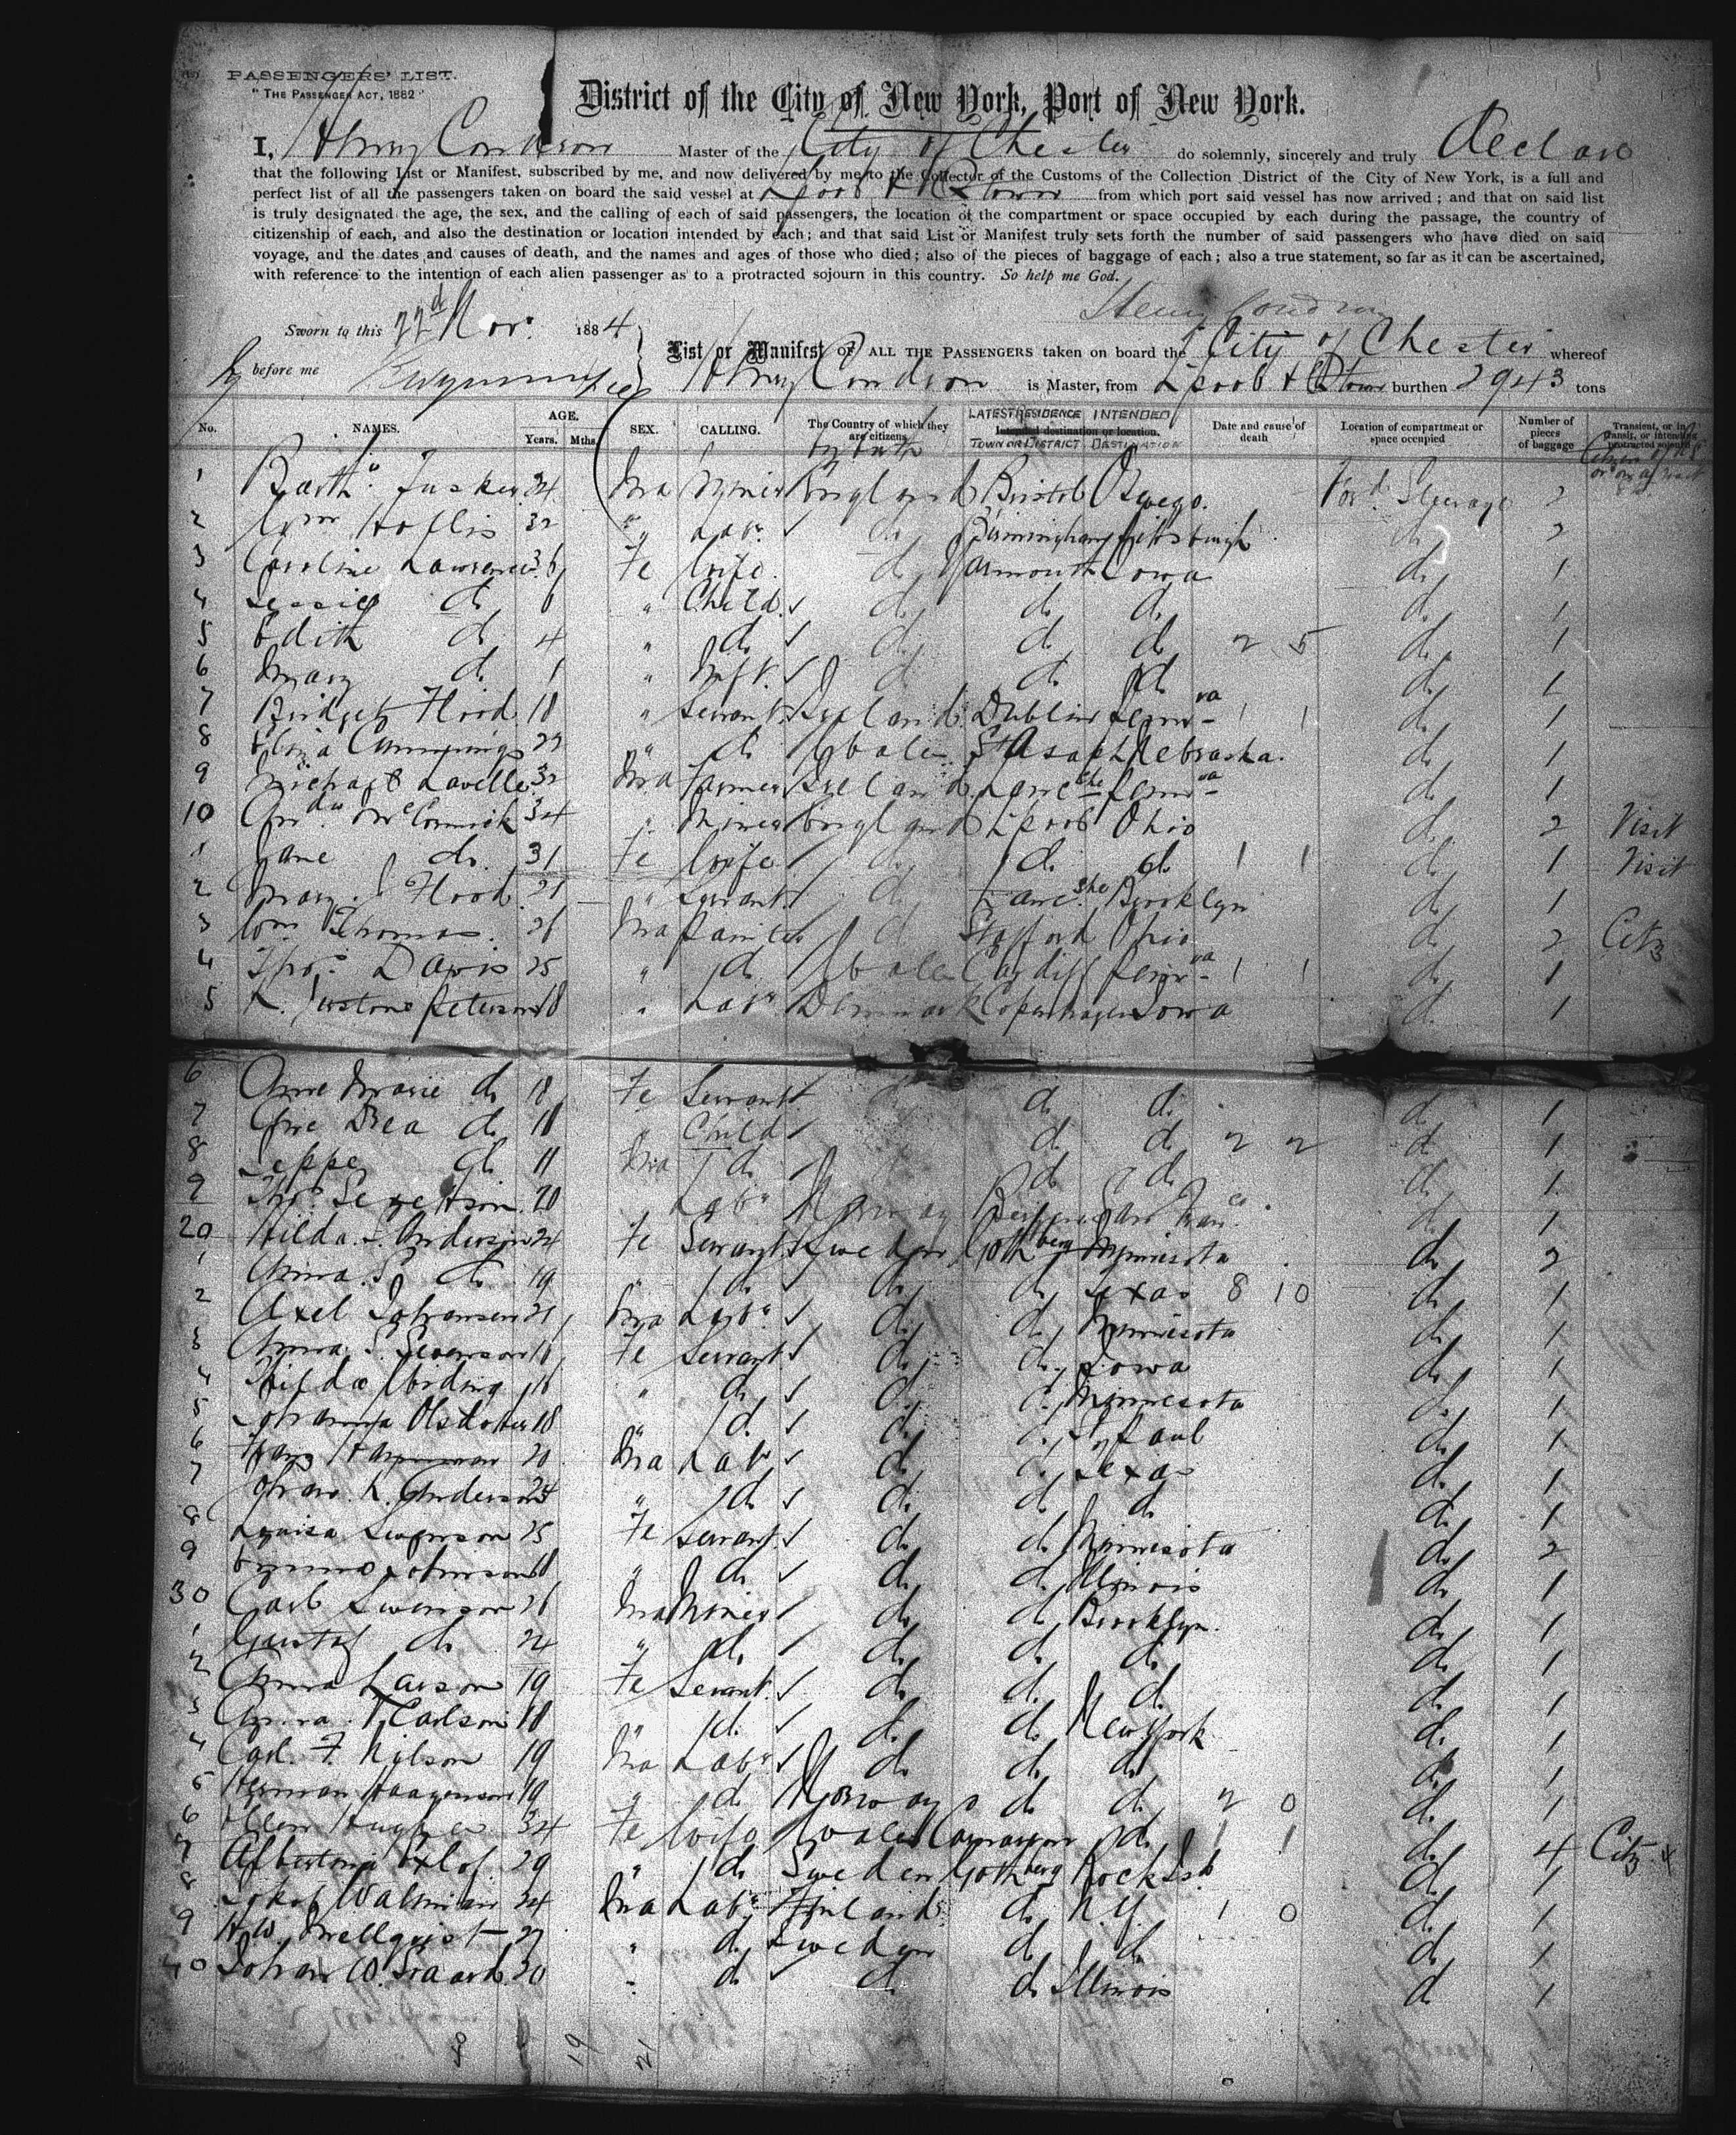 PASSENGERS' LIST.
"THE PASSENGER ACT, 1882"
District of the City of New York, Port of New York.
I, Henry Condron Master of the City of Chester do solemnly, sincerely and truly declare
that the following List or Manifest, subscribed by me, and now delivered by me to the Collector of the Customs of the Collection District of the City of New York, is a full and
perfect list of all the passengers taken on board the said vessel at L'pool & Q'town from which port said vessel has now arrived; and that on said list
is truly designated the age, the sex, and the calling of each of said passengers, the location of the compartment or space occupied by each during the passage, the country of
citizenship of each, and also the destination or location intended by each; and that said List or Manifest truly sets forth the number of said passengers who have died on said
voyage, and the dates and causes of death, and the names and ages of those who died; also of the pieces of baggage of each; also a true statement, so far as it can be ascertained,
with reference to the intention of each alien passenger as to a protracted sojourn in this country. So help me God.
Henry Condron
Sworn to this 22d Nov. 1884
before me
List or Manifest OF ALL THE PASSENGERS taken on board the City of Chester whereof
Henry Condron is Master, from L'pool & Q'town burthen 2943 tons
No. NAMES. AGE. Years. Mths. SEX. CALLING. The Country of which they are citizens by birth LATEST RESIDENCE TOWN OR DISTRICT INTENDED DESTINATION Intended destination or location. Date and cause of death Location of compartment or space occupied Number of pieces of baggage Transient, or in transit, or intending protracted sojourn
1 Barth. Tusker 24 Ma Miner England Bristol Oswego. For'd Steerage 2
2 Wm Hollis 32 " Labr. do Birmingham Pittsburgh do 2
3 Caroline Lawrence 36 Fe Wife do Yarmouth Iowa do 1
4 Jessie do 6 " Child do do do do 1
5 Edith do 4 " do do do do 2 5 do 1
6 Mary do 1 " Inft. do do do do 1
7 Bridget Flood 18 " Servant Ireland Dublin Penn-va 1 1 do 1
8 Eliza Cummings 22 " do Wales St Asaph Nebraska. do 1
9 Michael Lavelle 32 Ma Farmer Ireland Lancshe Penn-va do 1
10 Andw McCormick 34 " Miner England L'pool Ohio do 2 Visit
1 Jane do 31 Fe Wife do do do 1 1 do 1 Visit
2 Mary Flood 21 " Servant do Lancshe Brooklyn do 1
3 Wm Thomas 26 Ma Painter do Stafford Ohio do 2 Citz
4 Thos Davis 25 " do Wales Cardiff Penn-va 1 1 do 1
5 Peterson 18 " Labr Denmark Copenhagen Iowa do 1
6 Anne Marie do 18 Fe Servant do do do do 1
7 do 11 " Child do do 2 2 do 1
8 Jeppe do 11 Ma do do do do 1
9 Thos 20 Labr Norway Bergen San Franco do 1
20 Hilda S. Anderson 24 Fe Servant Sweden Gothberg Minnesota do 2
1 Anna S. do 19 " do do do Texas 8 10 do 1
2 Axel Johansen 21 Ma Labr do do Minnesota do 1
3 Anna S. Svenson 18 Fe Servant do do Iowa do 1
4 Hilda 18 " do do do Minnesota do 1
5 Johanna Olsdotter 18 " do do do St Paul do 1
6 20 Ma Labr do do Texas do 1
7 Johan L. Anderson 24 " do do do do do 1
8 Louisa Swenson 25 Fe Servant do do Minnesota do 2
9 Emma Johnson 18 " do do do Illinois do 1
30 Carl Swenson 26 Ma Miner do do Brooklyn. do 1
1 Gustaf do 24 " do do do do do 1
2 Anna Larson 19 Fe Servant do do do do 1
3 Anna Carlson 18 " do do do New York do 1
4 Carl F. Nilson 19 Ma Labr do do do do 1
5 Herman Haagenson 19 " do Norway do do 2 0 do 1
6 Ellen Hughes 34 Fe Wife Wales Carnarvon do 1 1 do 4 Citz
7 29 " do Sweden Gothberg Rock Isld do 1
8 Jakob 24 Ma Labr Finland do N.Y. 1 0 do 1
9 A.W. Mellquist 27 " do Sweden do do do 1
40 Johan W. 20 " do do do Illinois do 1